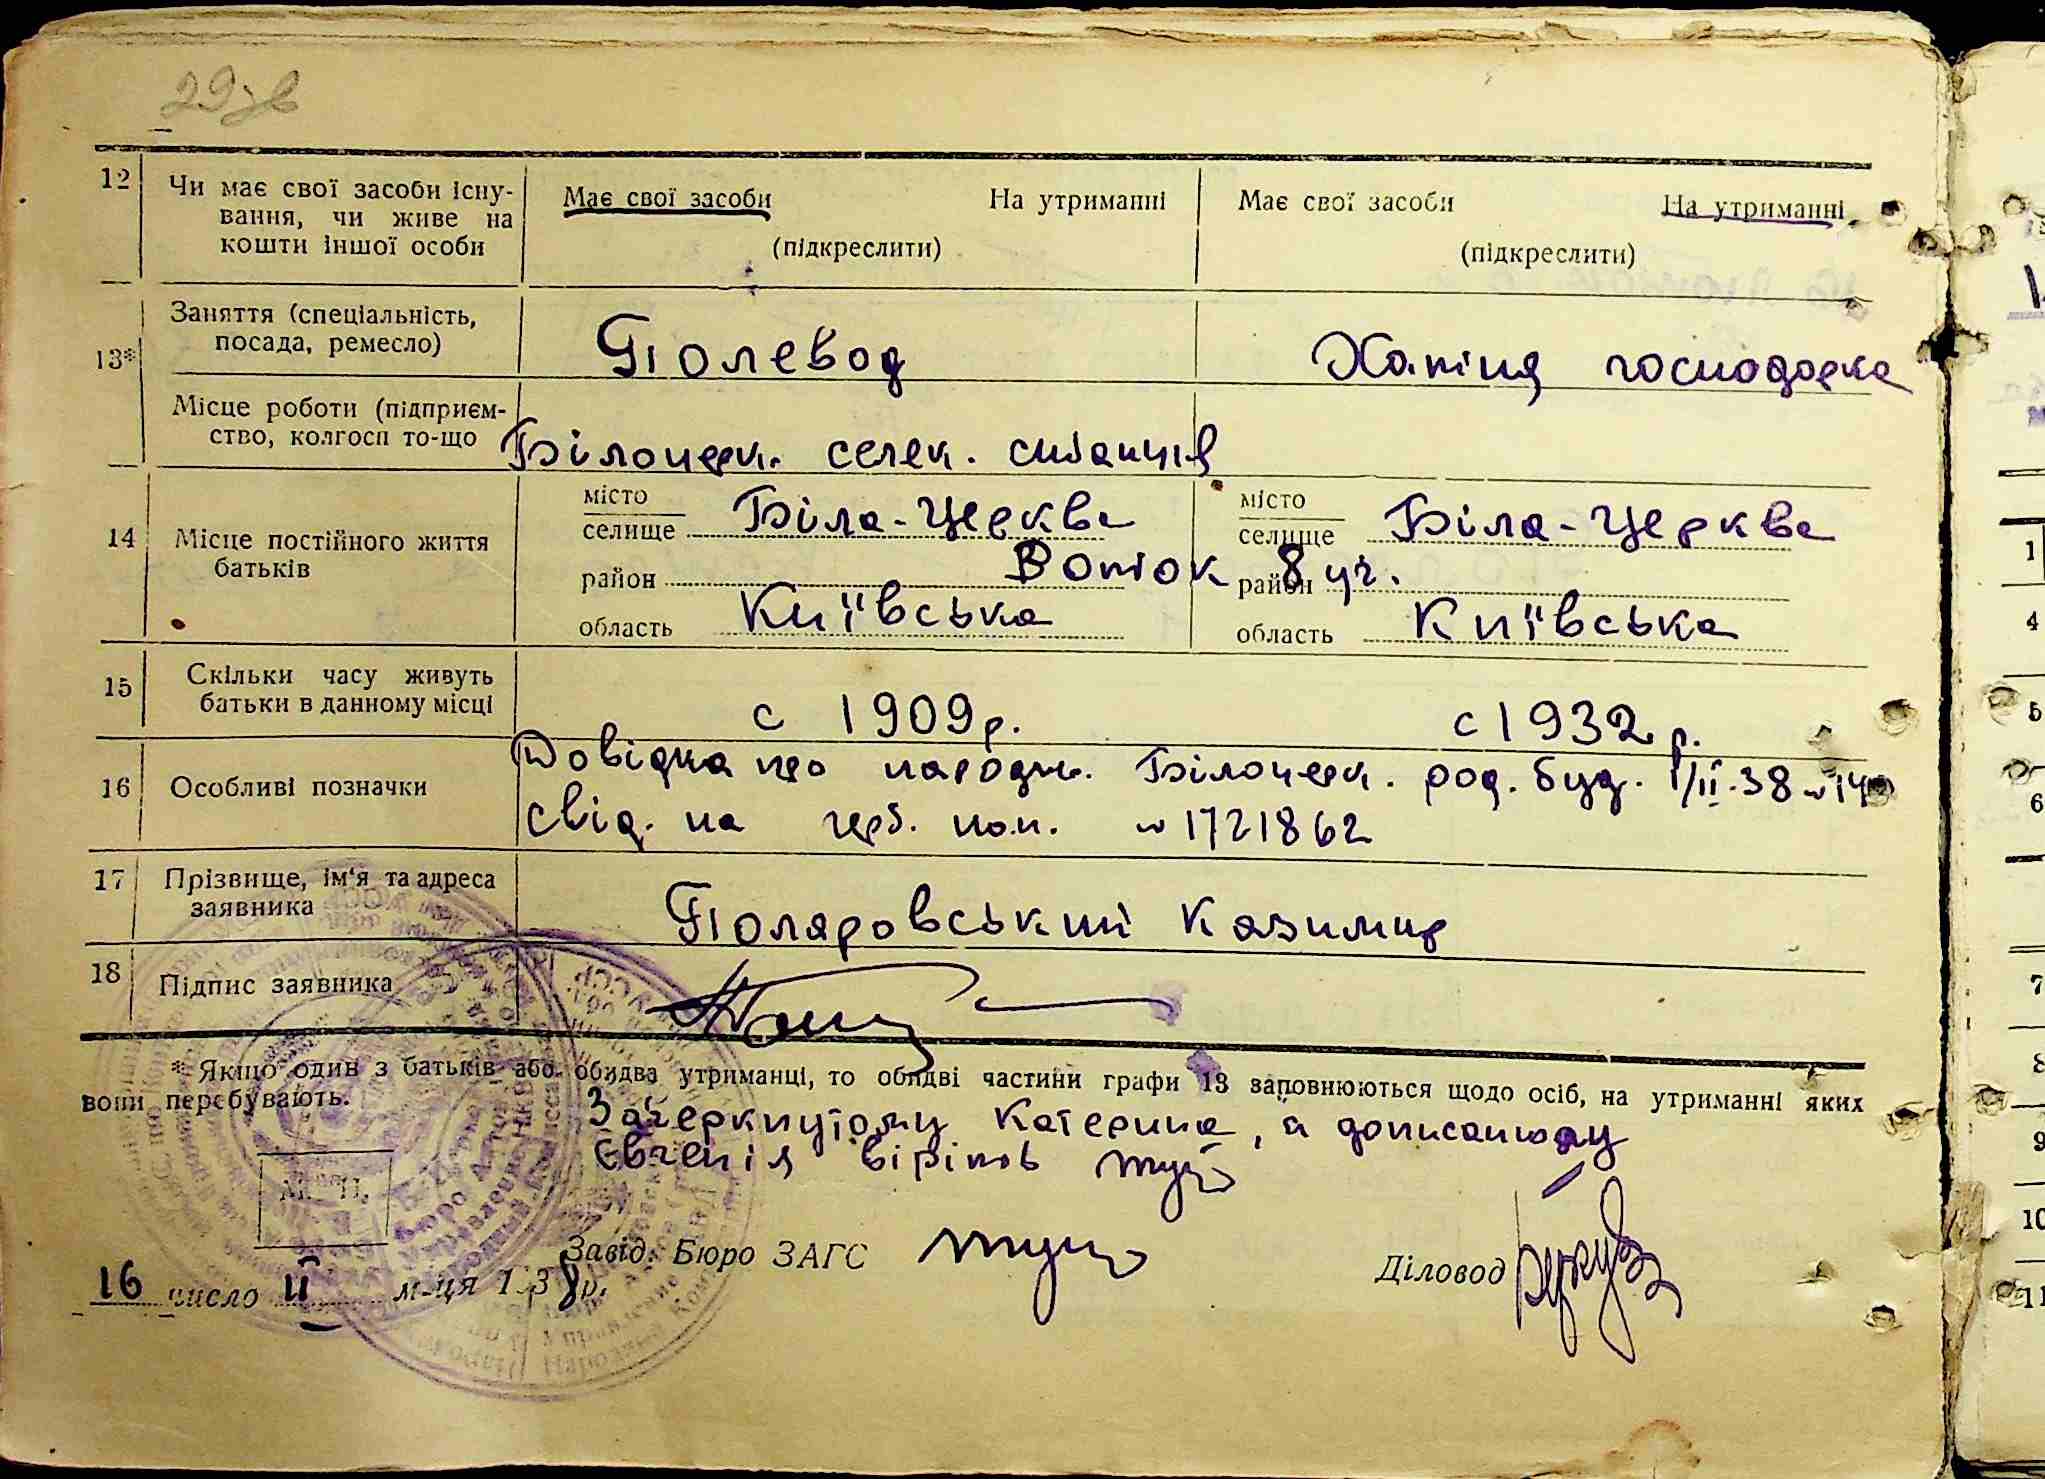 29 зв
12 Чи має свої засоби існу-
вання, чи живе на
кошти іншої особи
Має свої засоби На утриманні
(підкреслити)
Має свої засоби На утриманні
(підкреслити)
13* Заняття (спеціальність,
посада, ремесло)
Полевод
Хатня господарка
Місце роботи (підприєм-
ство, колгосп то-що
Білоцерк. селек. станція
14 Місце постійного життя
батьків
місто
селище Біла-Церква
місто
селище Біла-Церква
район район 8 уч.
область Київська
область Київська
15 Скільки часу живуть
батьки в данному місці
с 1909 р.
с 1932 р.
16 Особливі позначки
Довідка про народж. Білоцерк. род. буд. 1/II.38 № 14
свід. на герб. пап. № 1721862
17 Прізвище, ім'я та адреса
заявника
Поляровський Казимир
18 Підпис заявника
* Якщо один з батьків або обидва утриманці, то обидві частини графи 13 заповнюються щодо осіб, на утриманні яких
вони перебувають.
Зачеркнутому Катерина, а дописаному
Євгенія вірить
М. П.
Завід. Бюро ЗАГС
Діловод
16 число II м-ця 1938 р.
1
4
5
6
7
8
9
10
11